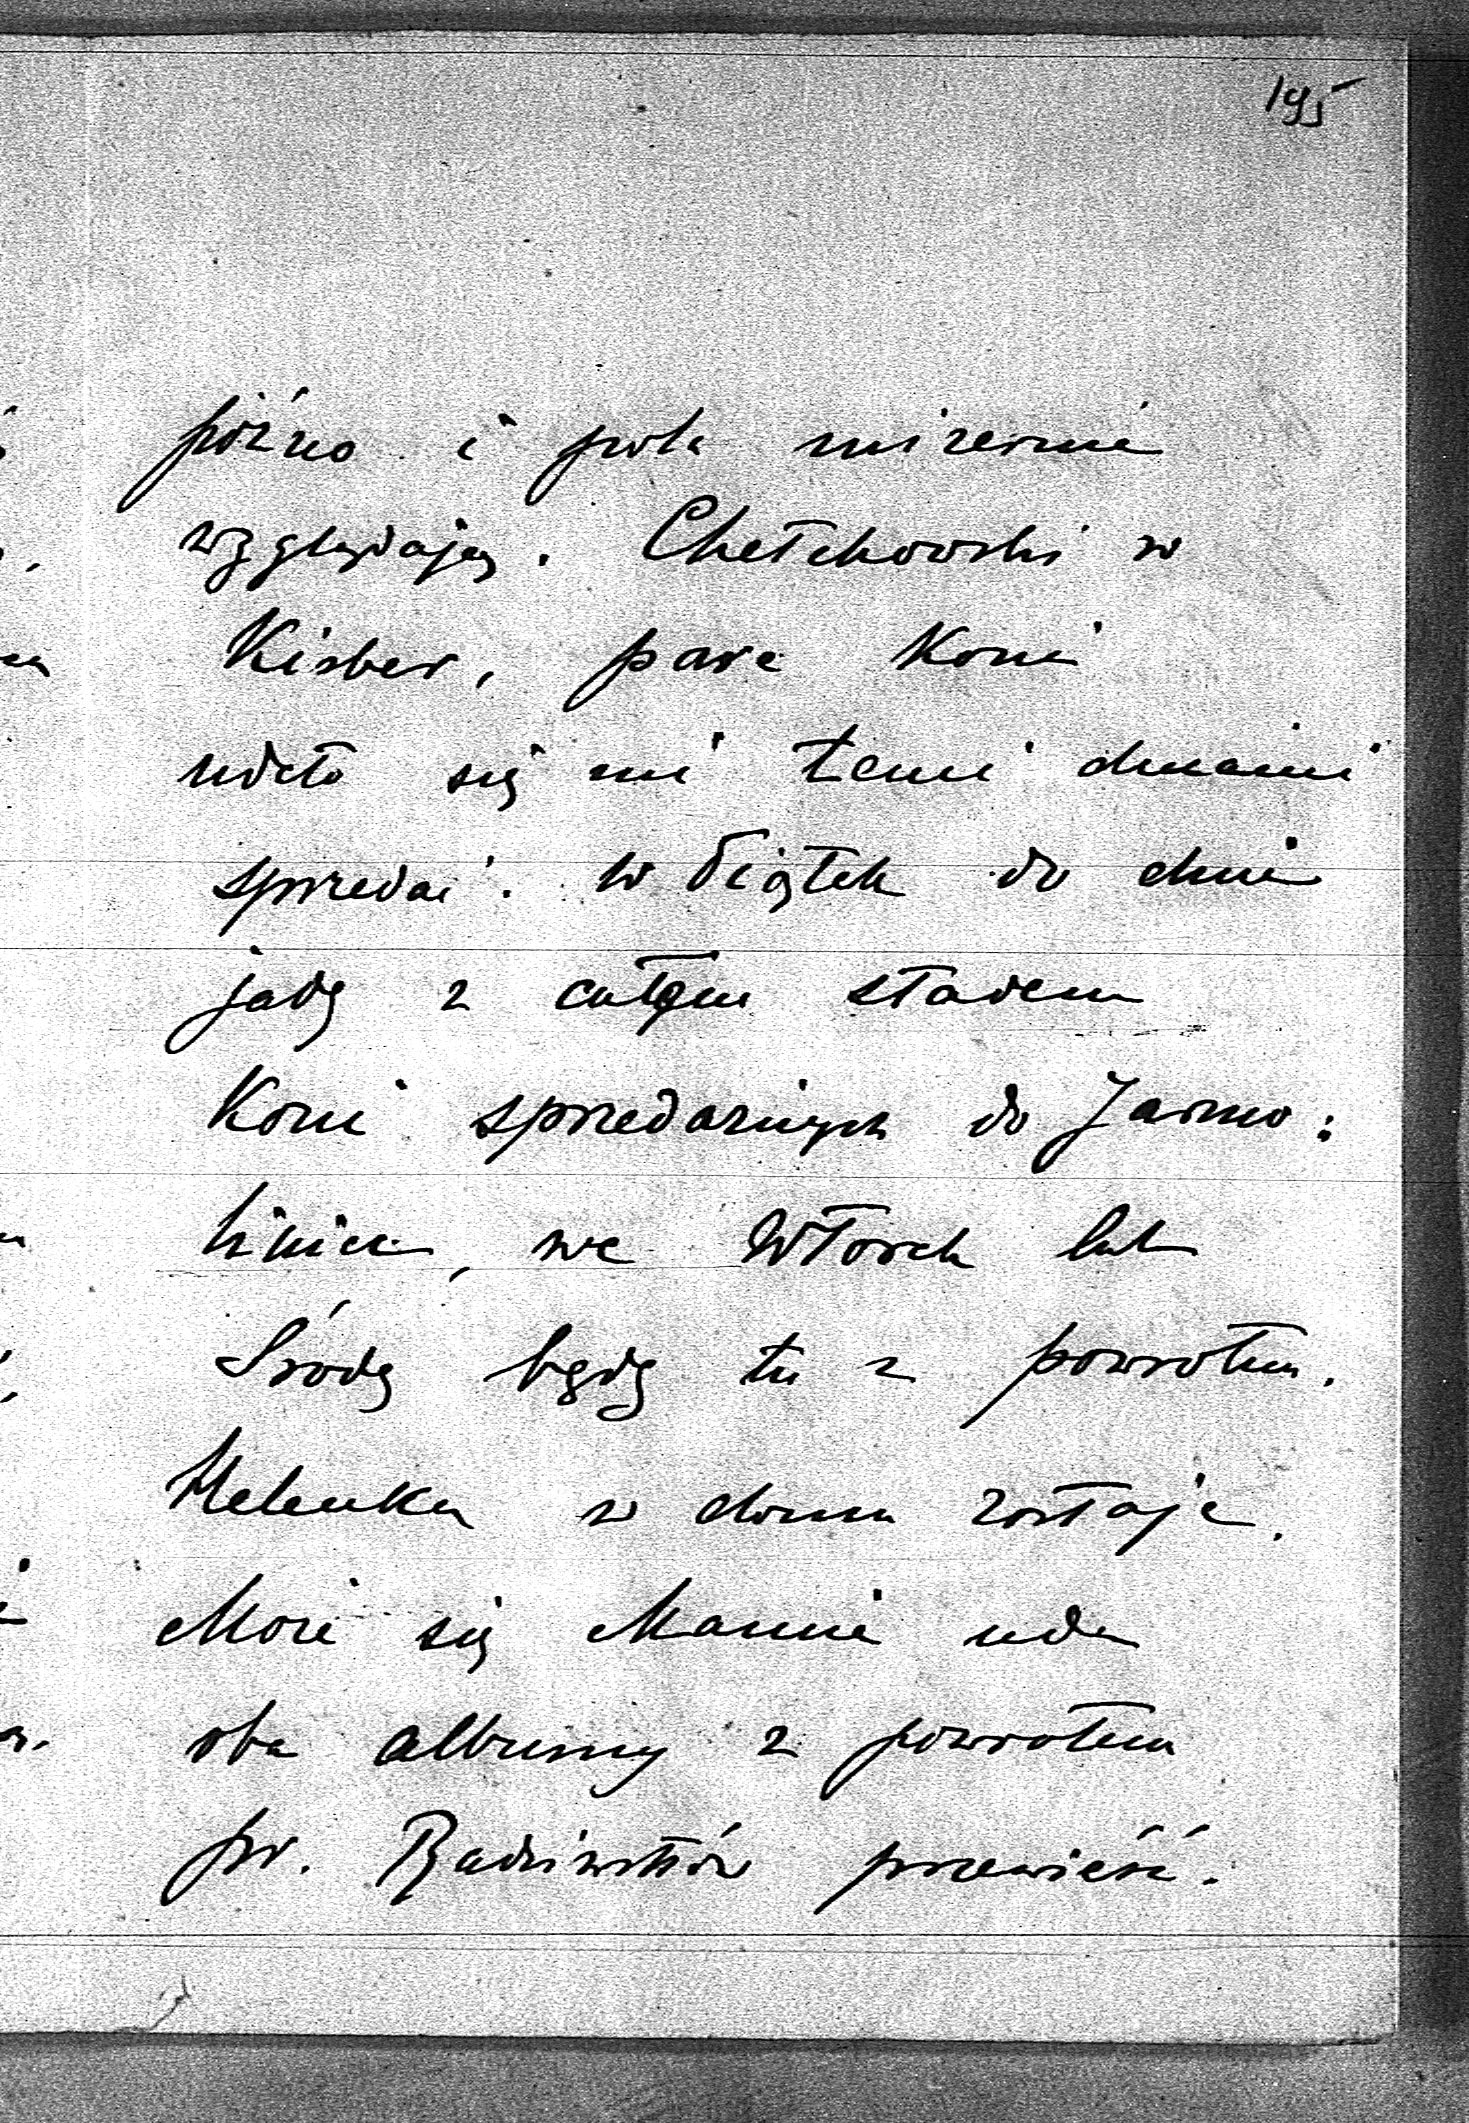 195
późno i pola mizernie
wyglądają. Chełchowski w
Kisber, parę koni
udało się mi temi dniami
sprzedać. w Piątek do dnia
jadę z całym stadem
Koni sprzedażnych do Jarmo:
liniec, we Wtorek lub
Środę będę tu z powrotem.
Helenka w domu zostaje.
Może się Mamie uda
oba albumy z powrotem
pr. Radziwiłłów przewieść.